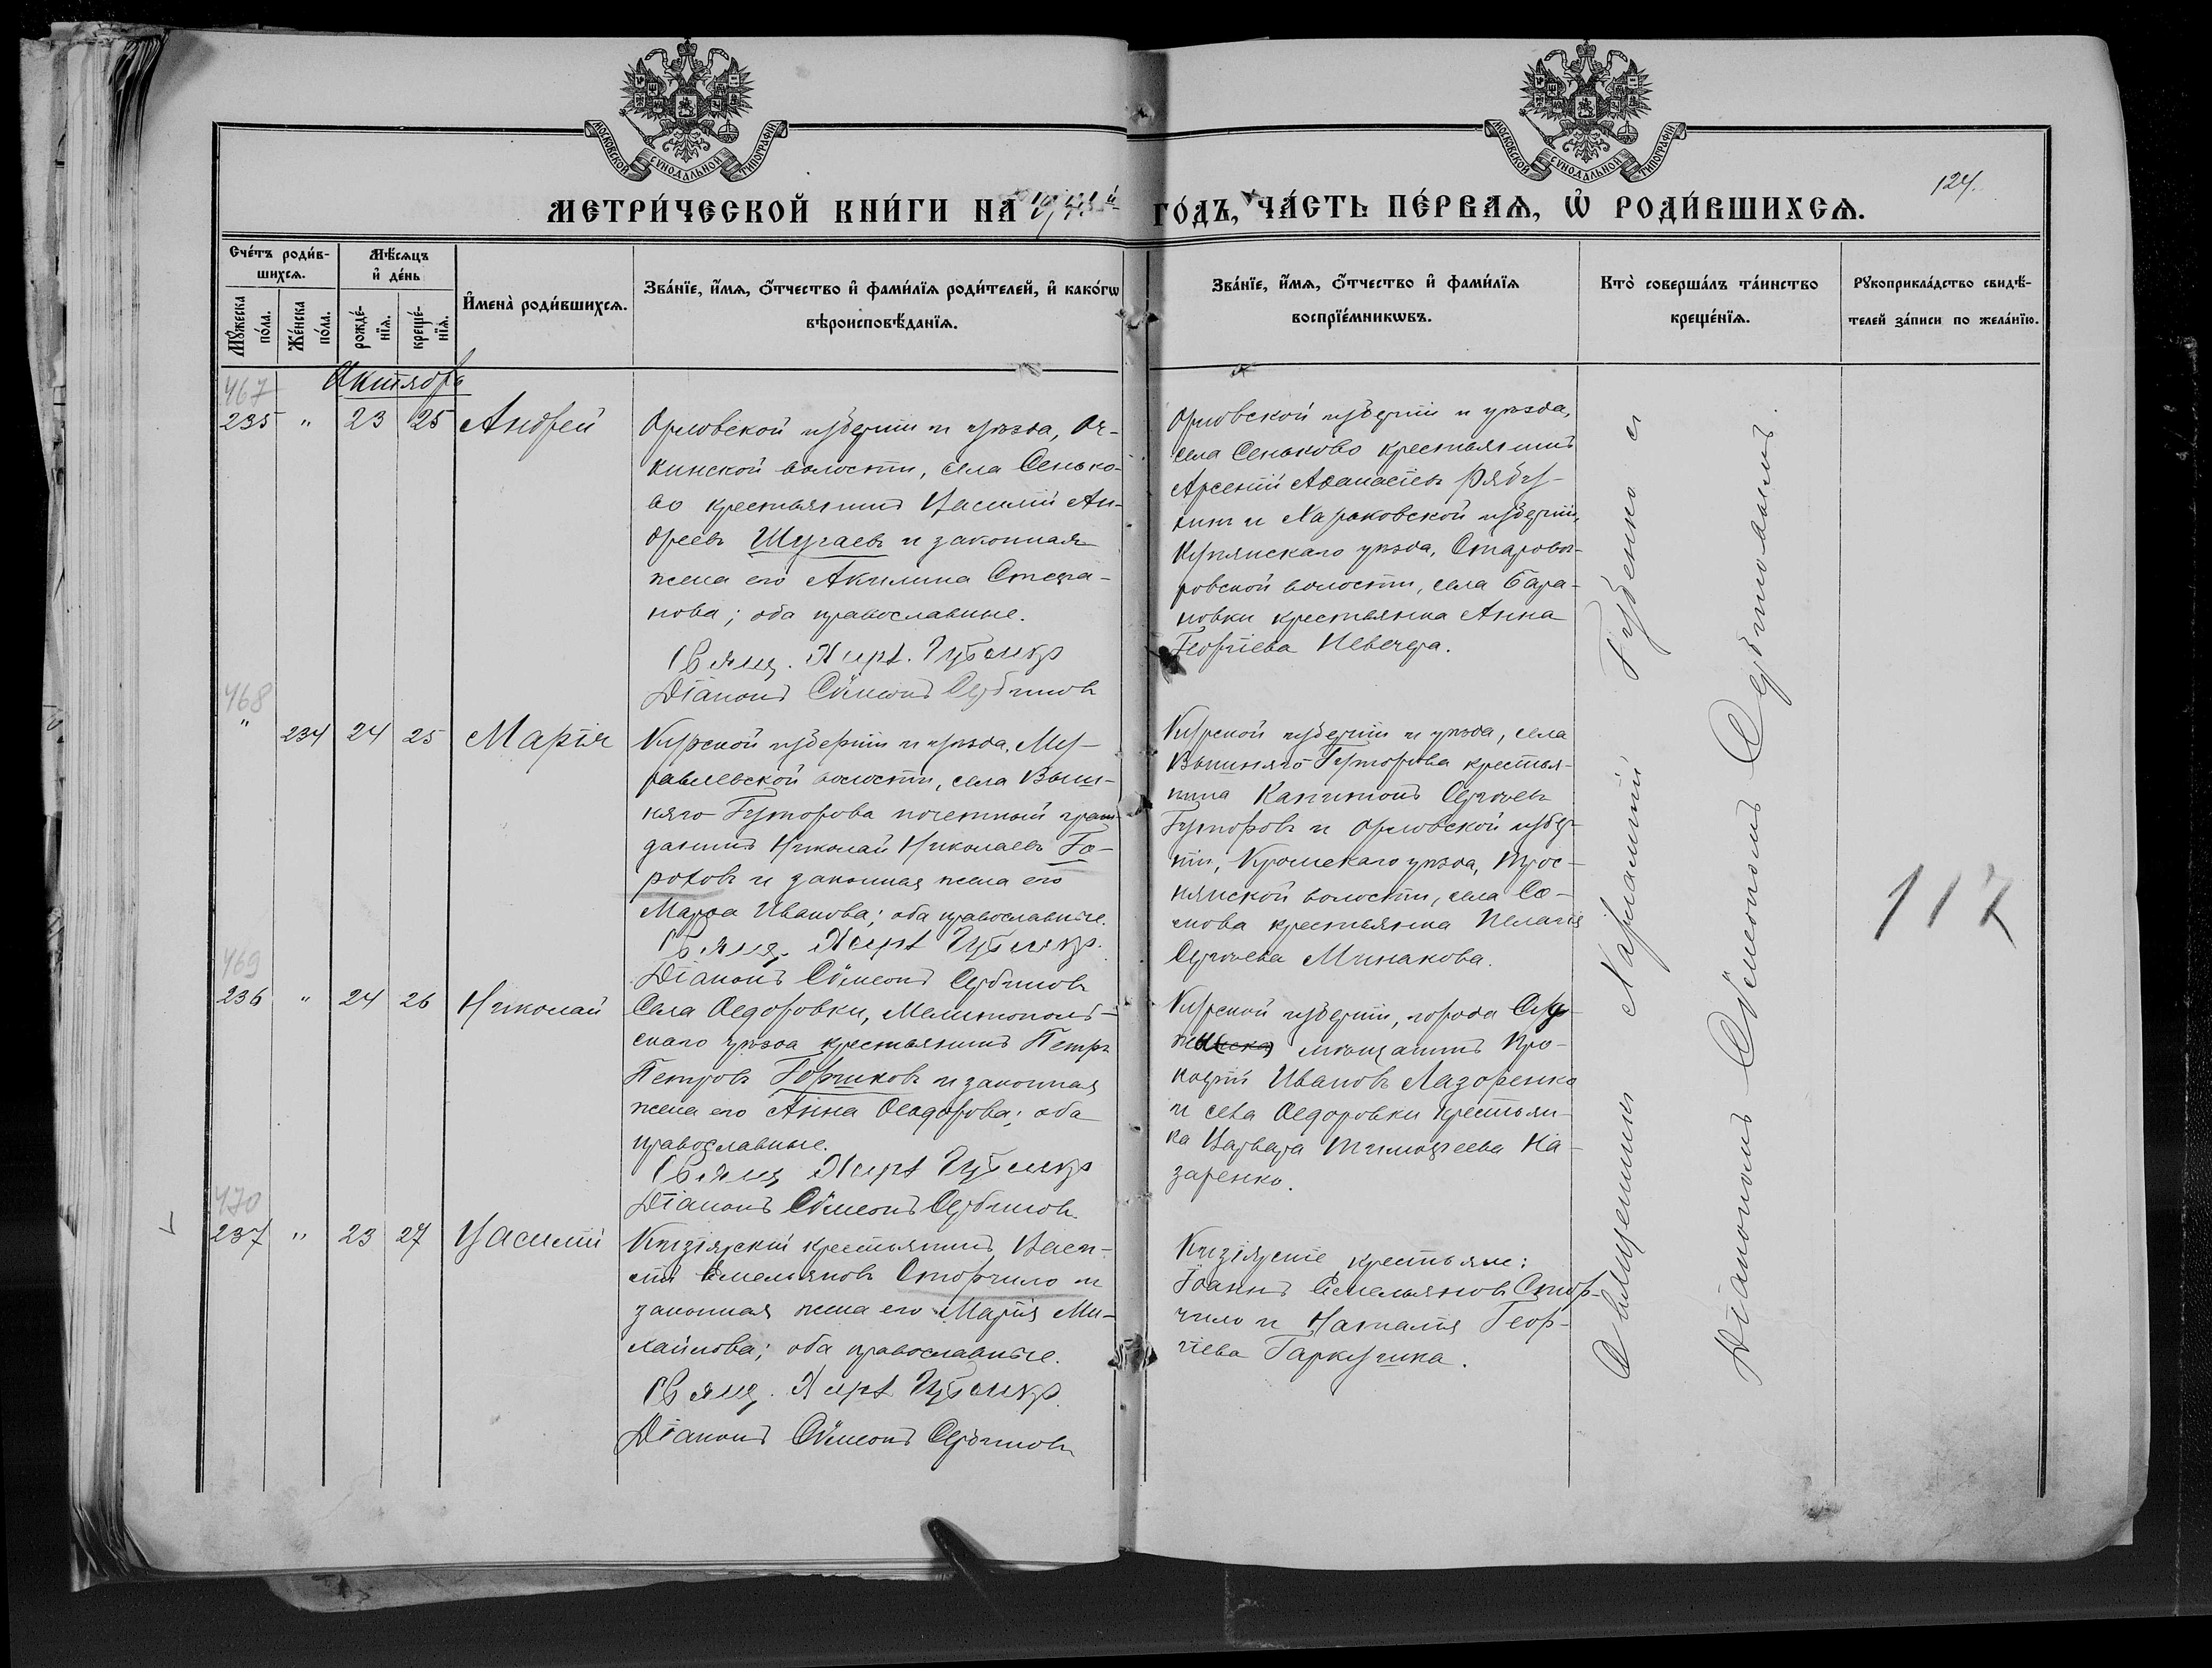 МОСКОВСКОЙ СѴНОДАЛЬНОЙ ТИПОГРАФІИ
МОСКОВСКОЙ СѴНОДАЛЬНОЙ ТИПОГРАФІИ
МЕТРИ́ЧЕСКОЙ КНИ́ГИ НА
ГО́ДЪ, ЧА́СТЬ ПЕ́РВАѦ, Ѡ҆ РОДИ́ВШИХСѦ.
124.
Сче́тъ роди́в-
шихсѧ.
Мꙋ́жеска по́ла.
Же́нска по́ла.
Мѣ́сѧцъ
и҆ де́нь
рожде́-
нїѧ.
креще́-
нїѧ.
И҆мена̀ роди́вшихсѧ.
Зва́нїе, и҆́мѧ, ѻ҆́тчество и҆ фами́лїѧ роди́телей, и҆ како́гѡ
вѣроисповѣ́данїѧ.
Зва́нїе, и҆́мѧ, ѻ҆́тчество и҆ фами́лїѧ
воспрїе́мникѡвъ.
Кто̀ соверша́лъ та́инство
креще́нїѧ.
Рꙋкоприкла́дство свидѣ́-
телей за́писи по жела́нїю.
Октября
467
235 " 23 25 Андрей
Орловской губерніи и уѣзда,
кинской волости, села Сенько-
во крестьянинъ Василій Ан-
дреевъ Шугаевъ и законная
жена его Акилина Стефа-
нова; оба православные.
Свящ. Харл. Губенко
Діаконъ Сѵмеонъ Сербиновъ
Орловской губерніи и уѣзда,
села Сеньково крестьянинъ
Арсеній Аѳанасіевъ Рябу-
хинъ и Харьковской губерніи,
Купянскаго уѣзда, Старовѣ-
ровской волости, села Бара-
новки крестьянка Анна
Георгіева Невечеря.
468
" 234 24 25 Марія
Курской губерніи и уѣзда, Му-
равлевской волости, села Выш-
няго Гуторова почетный граж-
данинъ Николай Николаевъ Го-
роховъ и законная жена его
Марѳа Иванова; оба православные.
Свящ. Харл. Губенко.
Діаконъ Сѵмеонъ Сербиновъ
Курской губерніи и уѣзда, села
Вышняго Гуторова крестья-
нинъ Капитонъ Сергѣевъ
Гуторовъ и Орловской губер-
ніи, Кромскаго уѣзда, Трос-
нянской волости, села Со-
мова крестьянка Пелагія
Сергѣева Минакова.
469
236 " 24 26 Николай
Села Ѳедоровки, Мелитополь-
скаго уѣзда крестьянинъ Петръ
Петровъ Горшковъ и законная
жена его Анна Ѳеодорова; оба
православные.
Свящ. Харл. Губенко
Діаконъ Сѵмеонъ Сербиновъ
Курской губерніи, города Суд-
жи мѣщанинъ Про-
кофій Ивановъ Лазоренко
и села Ѳедоровки крестьян-
ка Варвара Тимоѳеева На-
заренко.
470
237 " 23 27 Василій
Кизіярскій крестьянинъ Васи-
лій Емельяновъ Сторчило и
законная жена его Марія Ми-
хайлова; оба православные.
Свящ. Харл. Губенко.
Діаконъ Сѵмеонъ Сербиновъ
Кизіярскіе крестьяне:
Іоаннъ Емельяновъ Стор-
чило и Наталія Геор-
гіева Гаркушка.
Священникъ Харлампій Губенко съ
Діакономъ Сѵмеономъ Сербиновымъ.
117